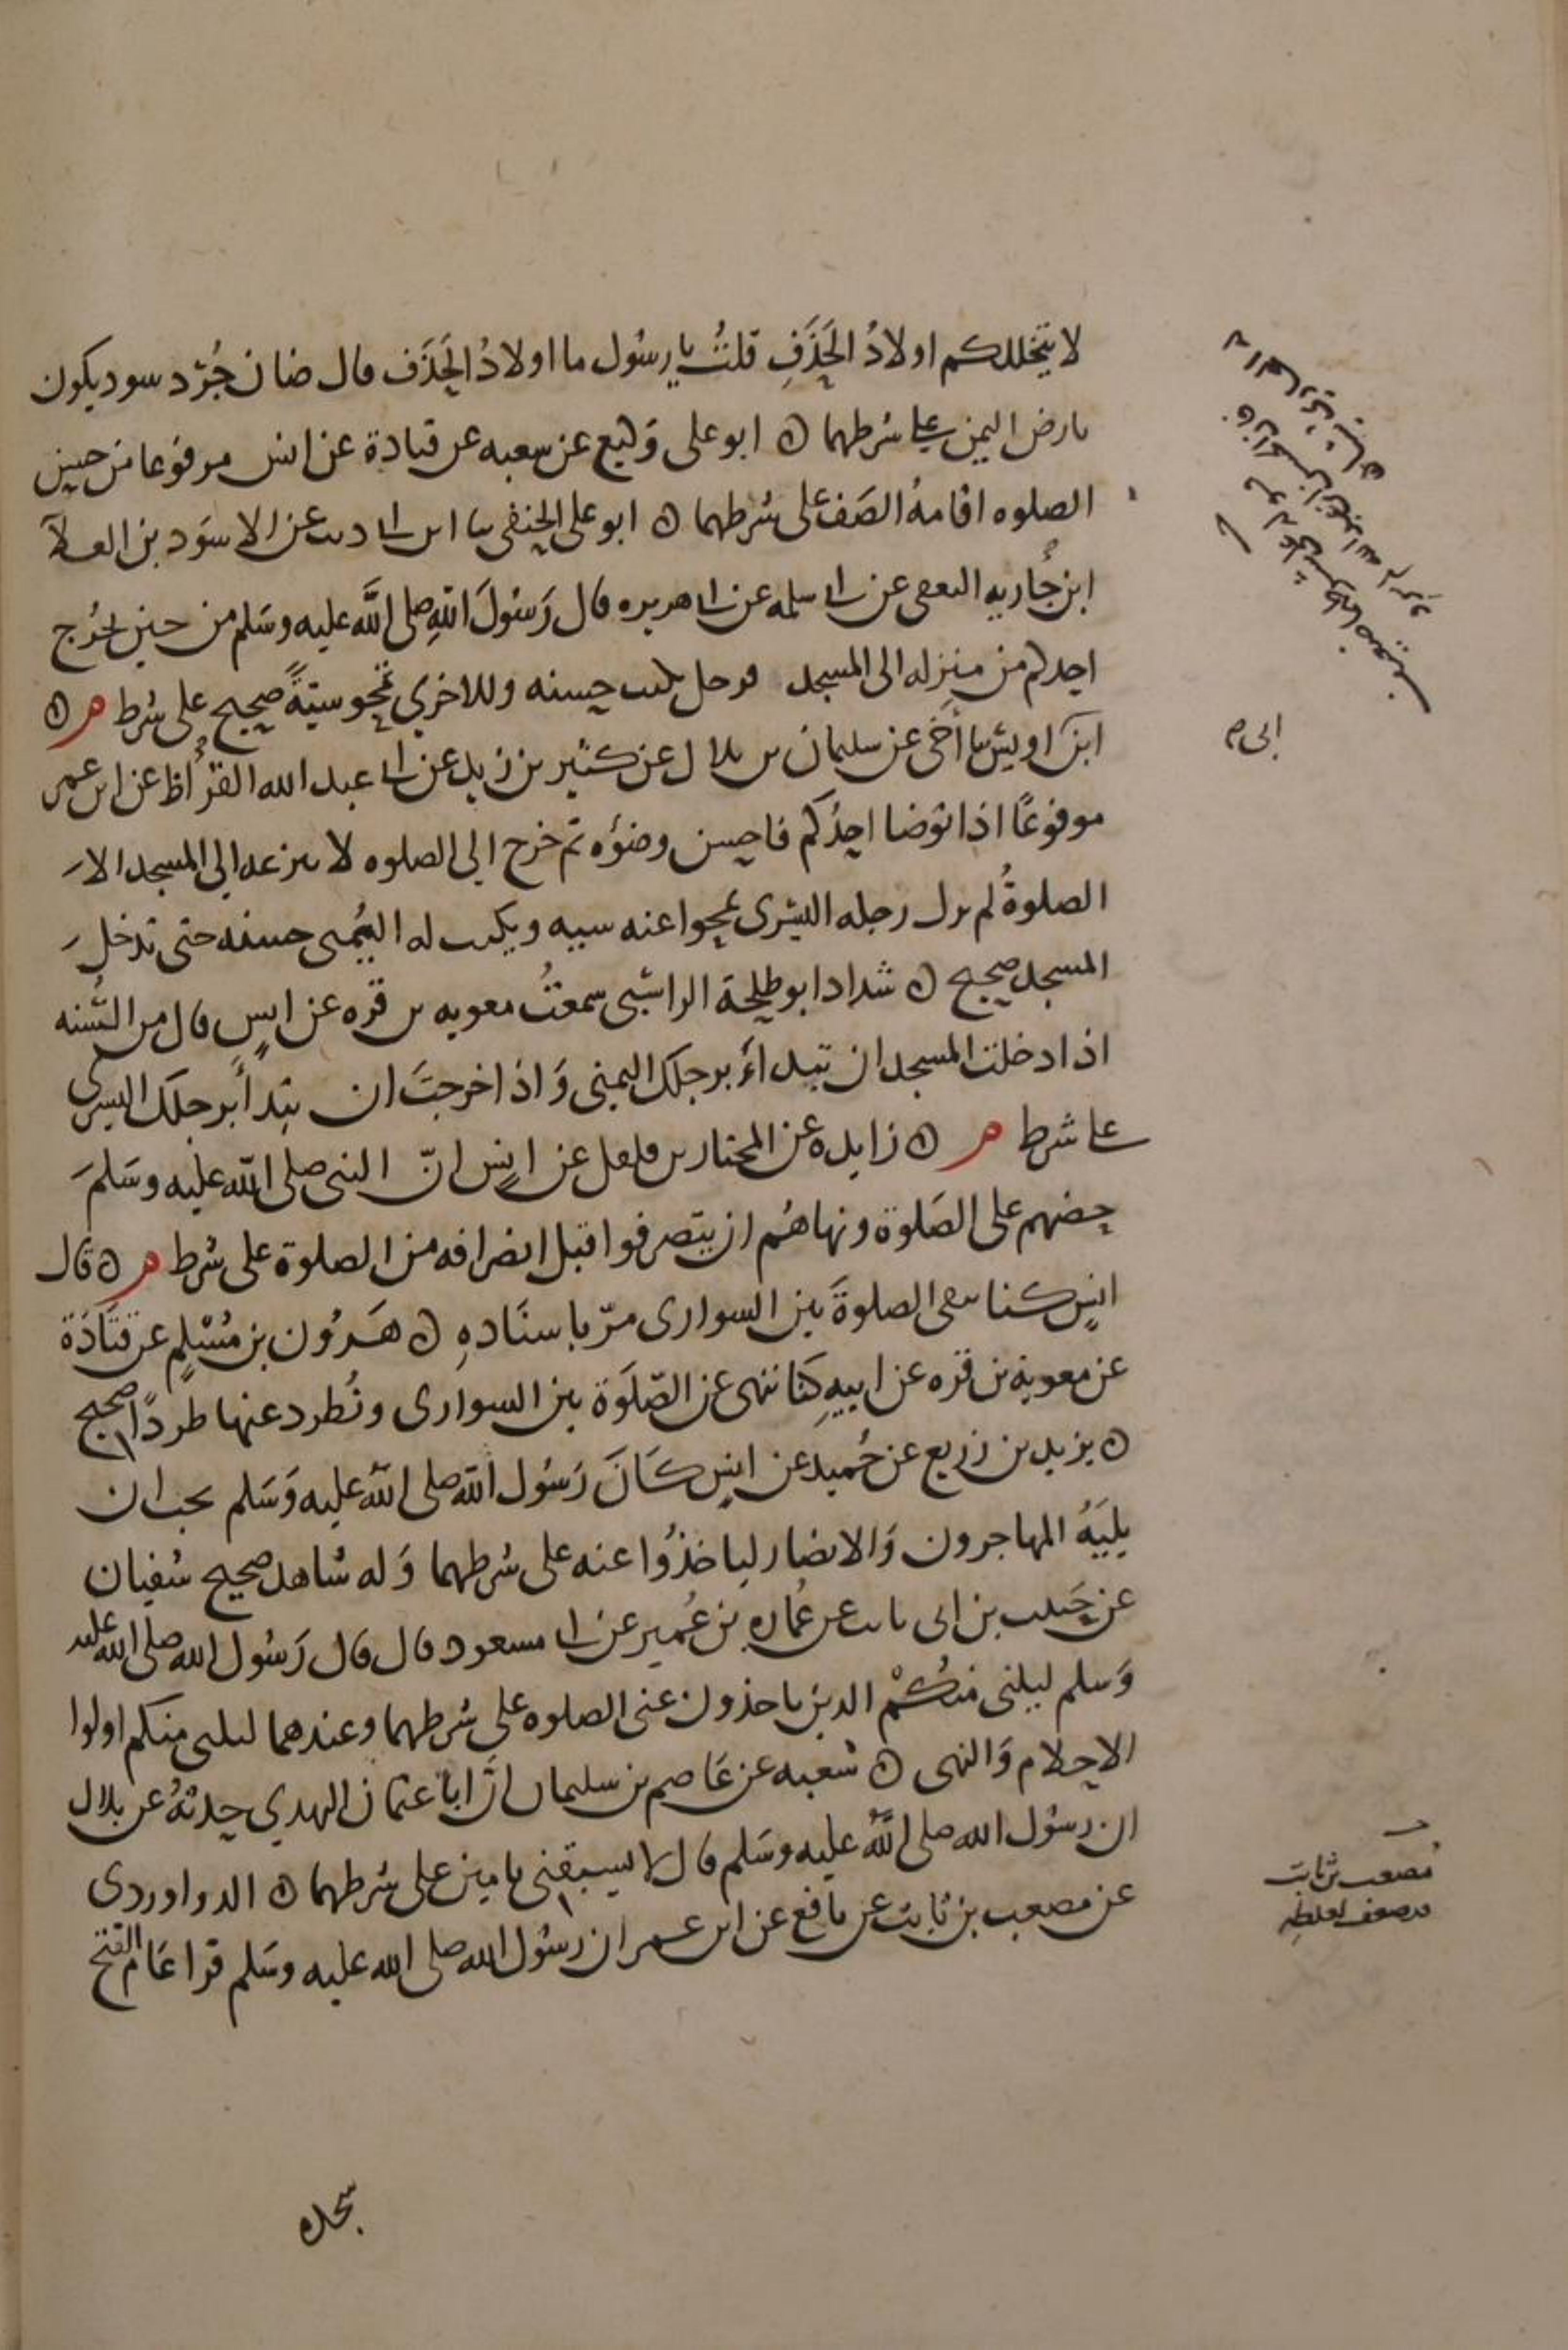 لا يتخللكم اولادُ الحَذَفِ قلتُ يا رسُول ما اولادُ الحَذَف قال ضان جُرْد سود يكون
بارض اليمن على شرطهما ۞ ابو على وكيع عن شعبه عن قتادة عن انس مرفوعا من حسن
الصلوه اقامةُ الصَف على شرطهما ۞ ابو على الحنفى ثنا ابن ابى ذئب عن الاسوَد بن العلآ
ابن جُاريه الثقفى عن ابى سلمه عن ابى هريره قال رَسُولَ اللهِ صلى اللَّه عليه وسَلم من حين يخرُج
احدكم من منزله الى المسجد فرجل تكتب حسنه وللاخري تمحو سيّةً صحيح على شرط م ۞
ابن اويس ثنا أخى عن سليمان بن بلال عن كثير بن زيد عن ابى عبد الله القرّاظ عن ابن عمر
مرفوعًا اذا توضا احدُكم فاحسن وضؤه ثم خرج الى الصلوه لا ينزعه الى المسجد الا
الصلوةُ لم تزل رجله اليسرى تمحوا عنه سييه ويكتب له اليُمنى حسنه حتى تدخل
المسجد صحيح ۞ شداد ابو طلحة الراسبى سمعتُ معويه بن قره عن انسٍ قال من السُّنه
اذا دخلت المسجد ان تبداءَ برجلك اليمنى وَاذا خرجتَ ان تبدأ برجلك اليسرى
على شرط م ۞ زايده عن المختار بن فلفل عن انس انّ النبى صلى الله عليه وسَلمَ
حضهم على الصَلوة ونهاهُم ان يتصرفوا قبل انصرافه من الصلوة على شرط م ۞ قال
انسٍ كنا نتقى الصلوةَ بين السوارى مرّ باسنَادهِ ۞ هَرُون بن مُسْلمٍ عن قتَادَة
عن معوية بن قره عن ابيهِ كنَا ننهى عن الصّلَوة بين السوارى ونُطرد عنها طردًا صحيح
۞ يزيد بن زريع عن حُميد عن انسٍ كانَ رَسُول الله صلى الله عليه وَسَلم يحب ان
يليَهُ المهاجرون وَالانصار لياخذُوا عنه على شرطهما وَله شاهد صحيح سُفيان
عن حَبيب بن ابى ثابت عن عُماره بن عُمير عن ابى مسعود قال قال رَسُول الله صلى الله عليه
وَسلم ليلنى منكُمْ الذين ياخذون عنى الصلوه على شرطهما وعندهما ليلنى منكم اولوا
الاحلام وَالنهى ۞ شعبه عن عَاصم بن سليمان انَّ ابا عثمان النهدي حدثهُ عن بلال
ان رسُول الله صلى الله عليه وسَلم قال لا يسبقنى بامين على شرطهما ۞ الدراوردى
عن مصعب بن ثابت عن نافع عن ابن عمر ان رسُول الله صلى الله عليه وسَلم قرا عَام الفتح
ابى م
مُصعب بن ثابت
سجد